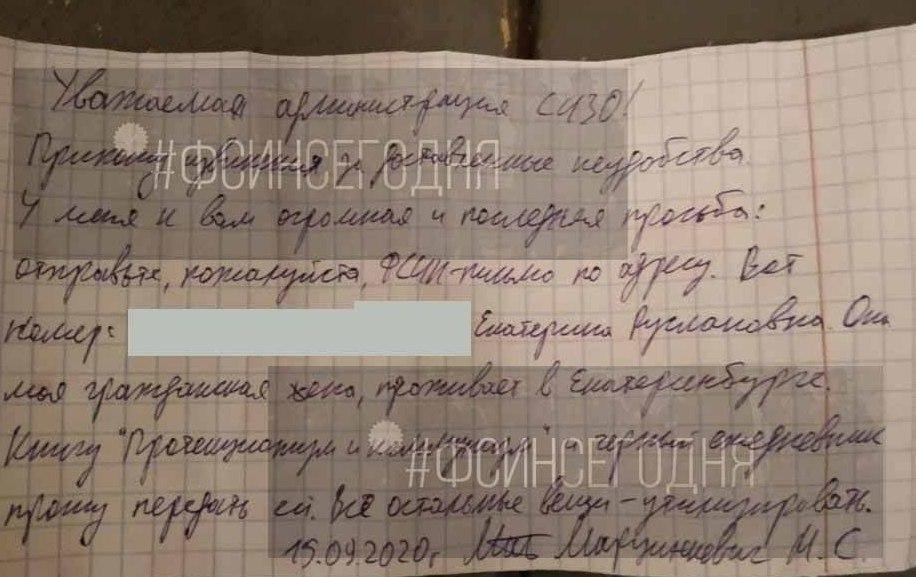 Уважаемая администрация СИЗО!
Приношу извинения за доставленные неудобства
У меня к вам огромная и последняя просьба:
отправьте, пожалуйста, ФСИН-письмо по адресу. Вот
номер: Екатерина Руслановна. Она
моя гражданская жена, проживает в Екатеринбурге.
Книгу "Протекционизм и коммунизм" и черный ежедневник
прошу передать ей. Все остальные вещи – утилизировать.
15.09.2020г Марцинкевич М.С.
#ФСИНСЕГОДНЯ
#ФСИНСЕГОДНЯ